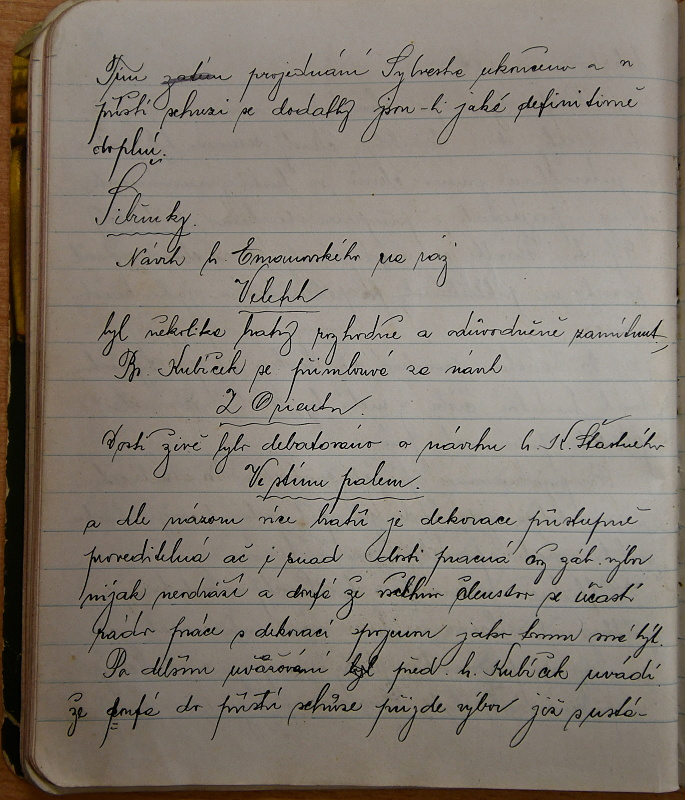 Tím zatím projednání Sylvestra ukončeno a v
příští schuzi se dodatky jsou-li jaké definitivně
doplní.
Šibřinky.
Návrh b. Emanovského na ráz
Veletrh
byl několika bratry rozhodně a odůvodněně zamítnut,
Br. Kubíček se přimlouvá za návrh
Z Orientu.
Dosti živě bylo debatováno o návrhu b. K. Šťastného
Ve stínu palem.
a dle názoru více bratří je dekorace přístupně
proveditelná ač i snad dosti pracná což záb. výbor
nijak neodráží a doufá že všechno členstvo se účastí
rádo práce s dekorací spojenou jako tomu vně býl.
Po delším uvažování byl před. b. Kubíček uvádí
že doufá do příští schůze přijde výbor již s ustá-